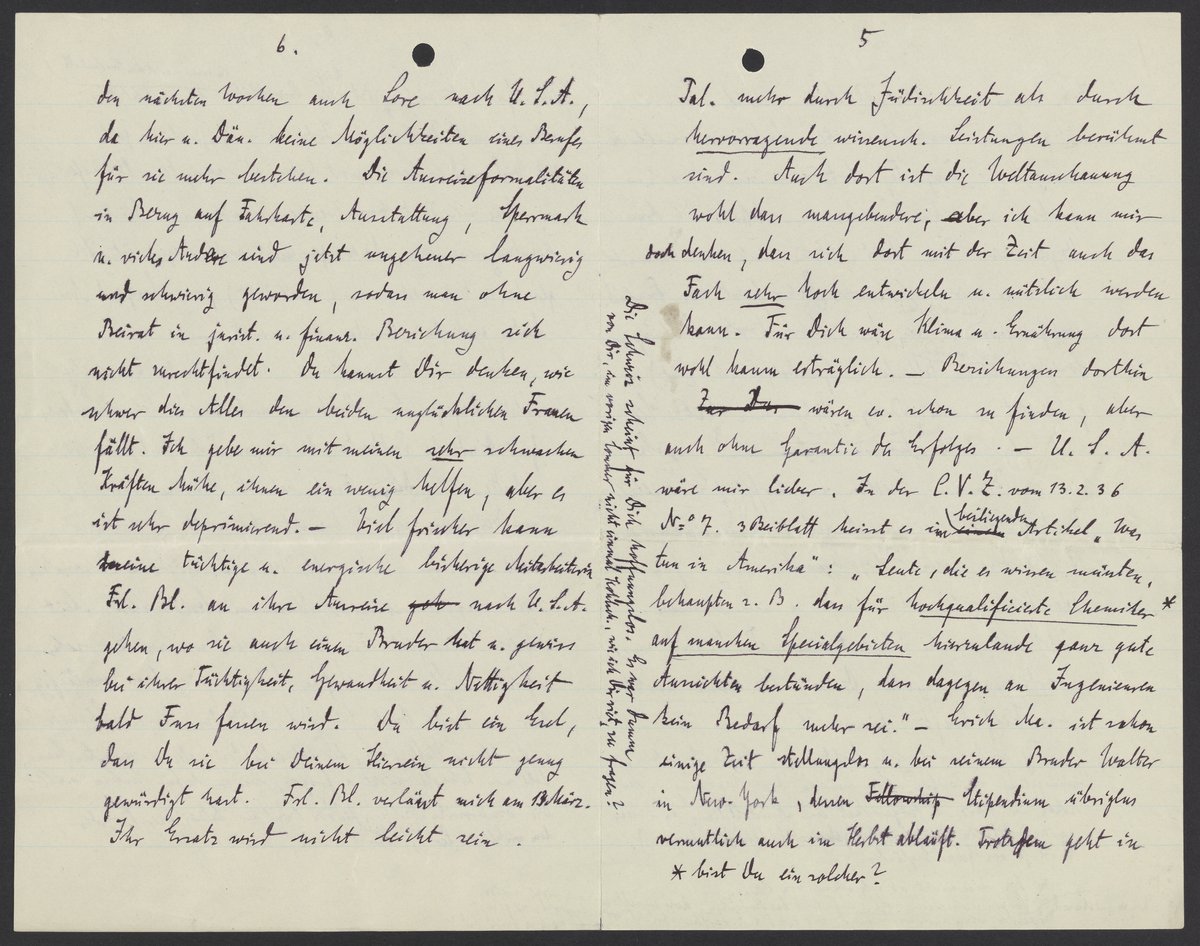 5
Pal. mehr durch Jüdischkeit als durch
hervorragende wissensch. Leistungen berühmt
sind. Auch dort ist die Weltanschauung
wohl das massgebendere, aber ich kann mir
doch denken, dass sich dort mit der Zeit auch das
Fach sehr hoch entwickeln u. nützlich werden
kann. Für Dich wäre Klima u. Ernährung dort
wohl kaum erträglich. — Beziehungen dorthin
wären ev. schon zu finden, aber
auch ohne Garantie des Erfolges. — U. S. A.
wäre mir lieber. In der C. V. Z. vom 13.2.36
No 7. 3 Beiblatt heisst es im beiliegenden Artikel „Was
tun in Amerika“: „Leute, die es wissen müssten,
behaupten z. B. dass für hochqualificierte Chemiker *
auf manchen Specialgebieten hierzulande ganz gute
Aussichten bestünden, dass dagegen an Ingenieuren
kein Bedarf mehr sei.“ — Erich Ma. ist schon
einige Zeit stellungslos u. bei seinem Bruder Walter
in New-York, dessen Fellowship Stipendium übrigens
vermutlich auch im Herbst abläuft. Trotzdem geht in
* bist Du ein solcher?
Die Schweiz scheint für Dich hoffnungslos. Es war dumm
von Dir, im vorigen Sommer nicht einmal, wie ich Dir riet, zu fragen?
6.
den nächsten Wochen auch Lore nach U. S. A.,
da hier u. Dän. keine Möglichkeiten eines Berufes
für sie mehr bestehen. Die Ausreiseformalitäten
in Bezug auf Fahrkarte, Ausstattung, Sperrmark
u. vieles Andere sind jetzt ungeheuer langwierig
und schwierig geworden, sodass man ohne
Beirat in jurist. u. finanz. Beziehung sich
nicht zurechtfindet. Du kannst Dir denken, wie
schwer dies Alles den beiden unglücklichen Frauen
fällt. Ich gebe mir mit meinen sehr schwachen
Kräften Mühe, ihnen ein wenig helfen, aber es
ist sehr deprimierend. — Viel frischer kann
meine tüchtige u. energische bisherige Mitarbeiterin
Frl. Bl. an ihre Ausreise geh nach U. S. A.
gehen, wo sie auch einen Bruder hat u. gewiss
bei ihrer Tüchtigkeit, Gewandheit u. Nettigkeit
bald Fuss fassen wird. Du bist ein Esel,
dass Du sie bei Deinem Hiersein nicht genug
gewürdigt hast. Frl. Bl. verlässt mich am 13. März.
Ihr Ersatz wird nicht leicht sein.